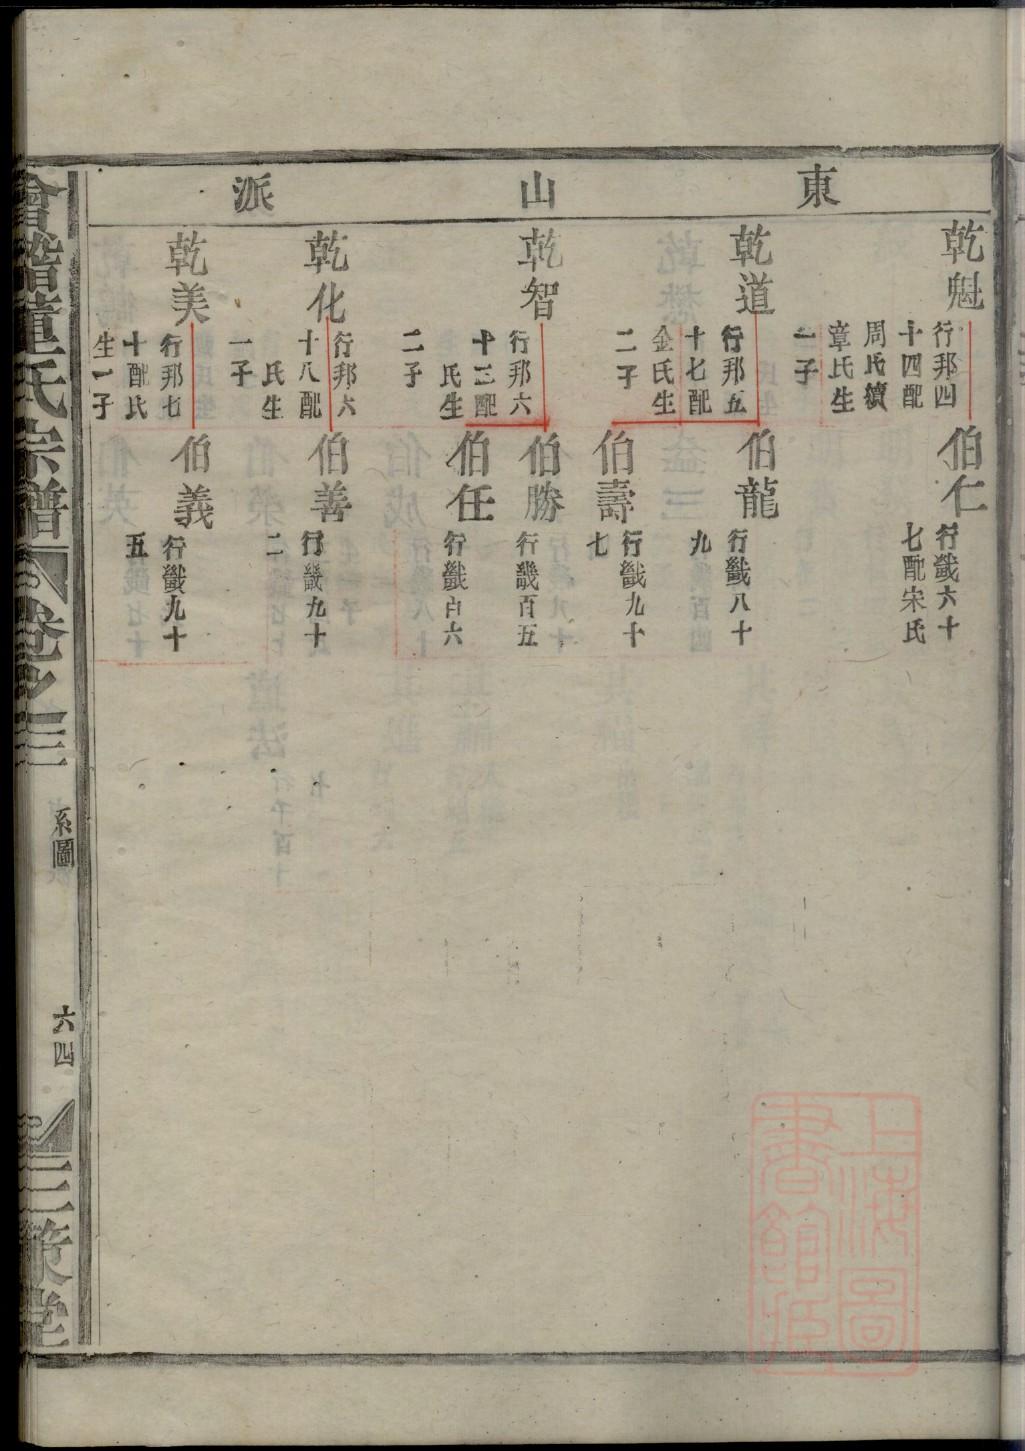 東山派
乾魁
行邦四
十四配
周氏續
章氏生
一子
伯仁
行㡬六十
七配宋氏
乾道
行邦五
十七配
金氏生
二子
伯龍
行㡬八十
九
伯壽
行㡬九十
七
乾智
行邦六
十三配
氏生
二子
伯勝
行㡬百五
伯任
行㡬百六
乾化
行邦六
十八配
氏生
一子
伯善
行㡬九十
二
乾美
行邦七
十配氏
生一子
伯義
行㡬九十
五
會稽董氏宗譜
卷之三
系圖
六四
三策堂
上海圖
書館藏